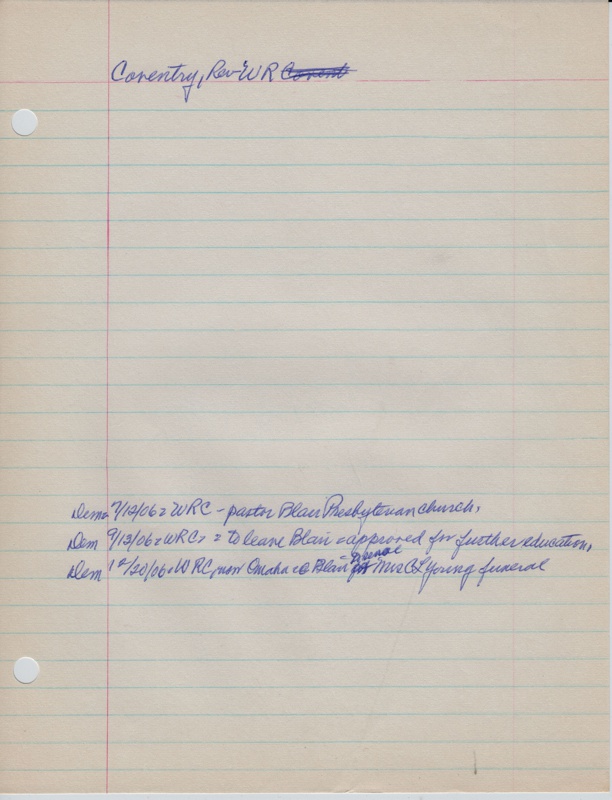 Coventry, Rev W R
Dem = 7/12/06 = WRC - pastor Blair Presbyterian church.
Dem 9/13/06 = WRC = = to leave Blair = approved for further education.
Dem /20/06 = WRC, now Omaha = @ Blair = Mrs C L Young funeral